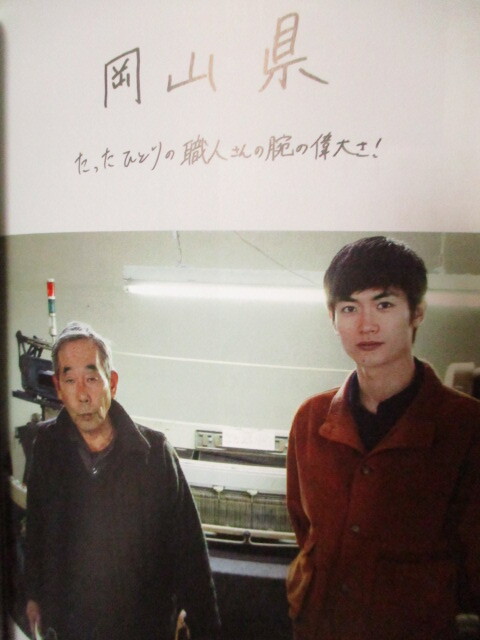 岡山県
たったひとりの職人さんの腕の偉大さ!